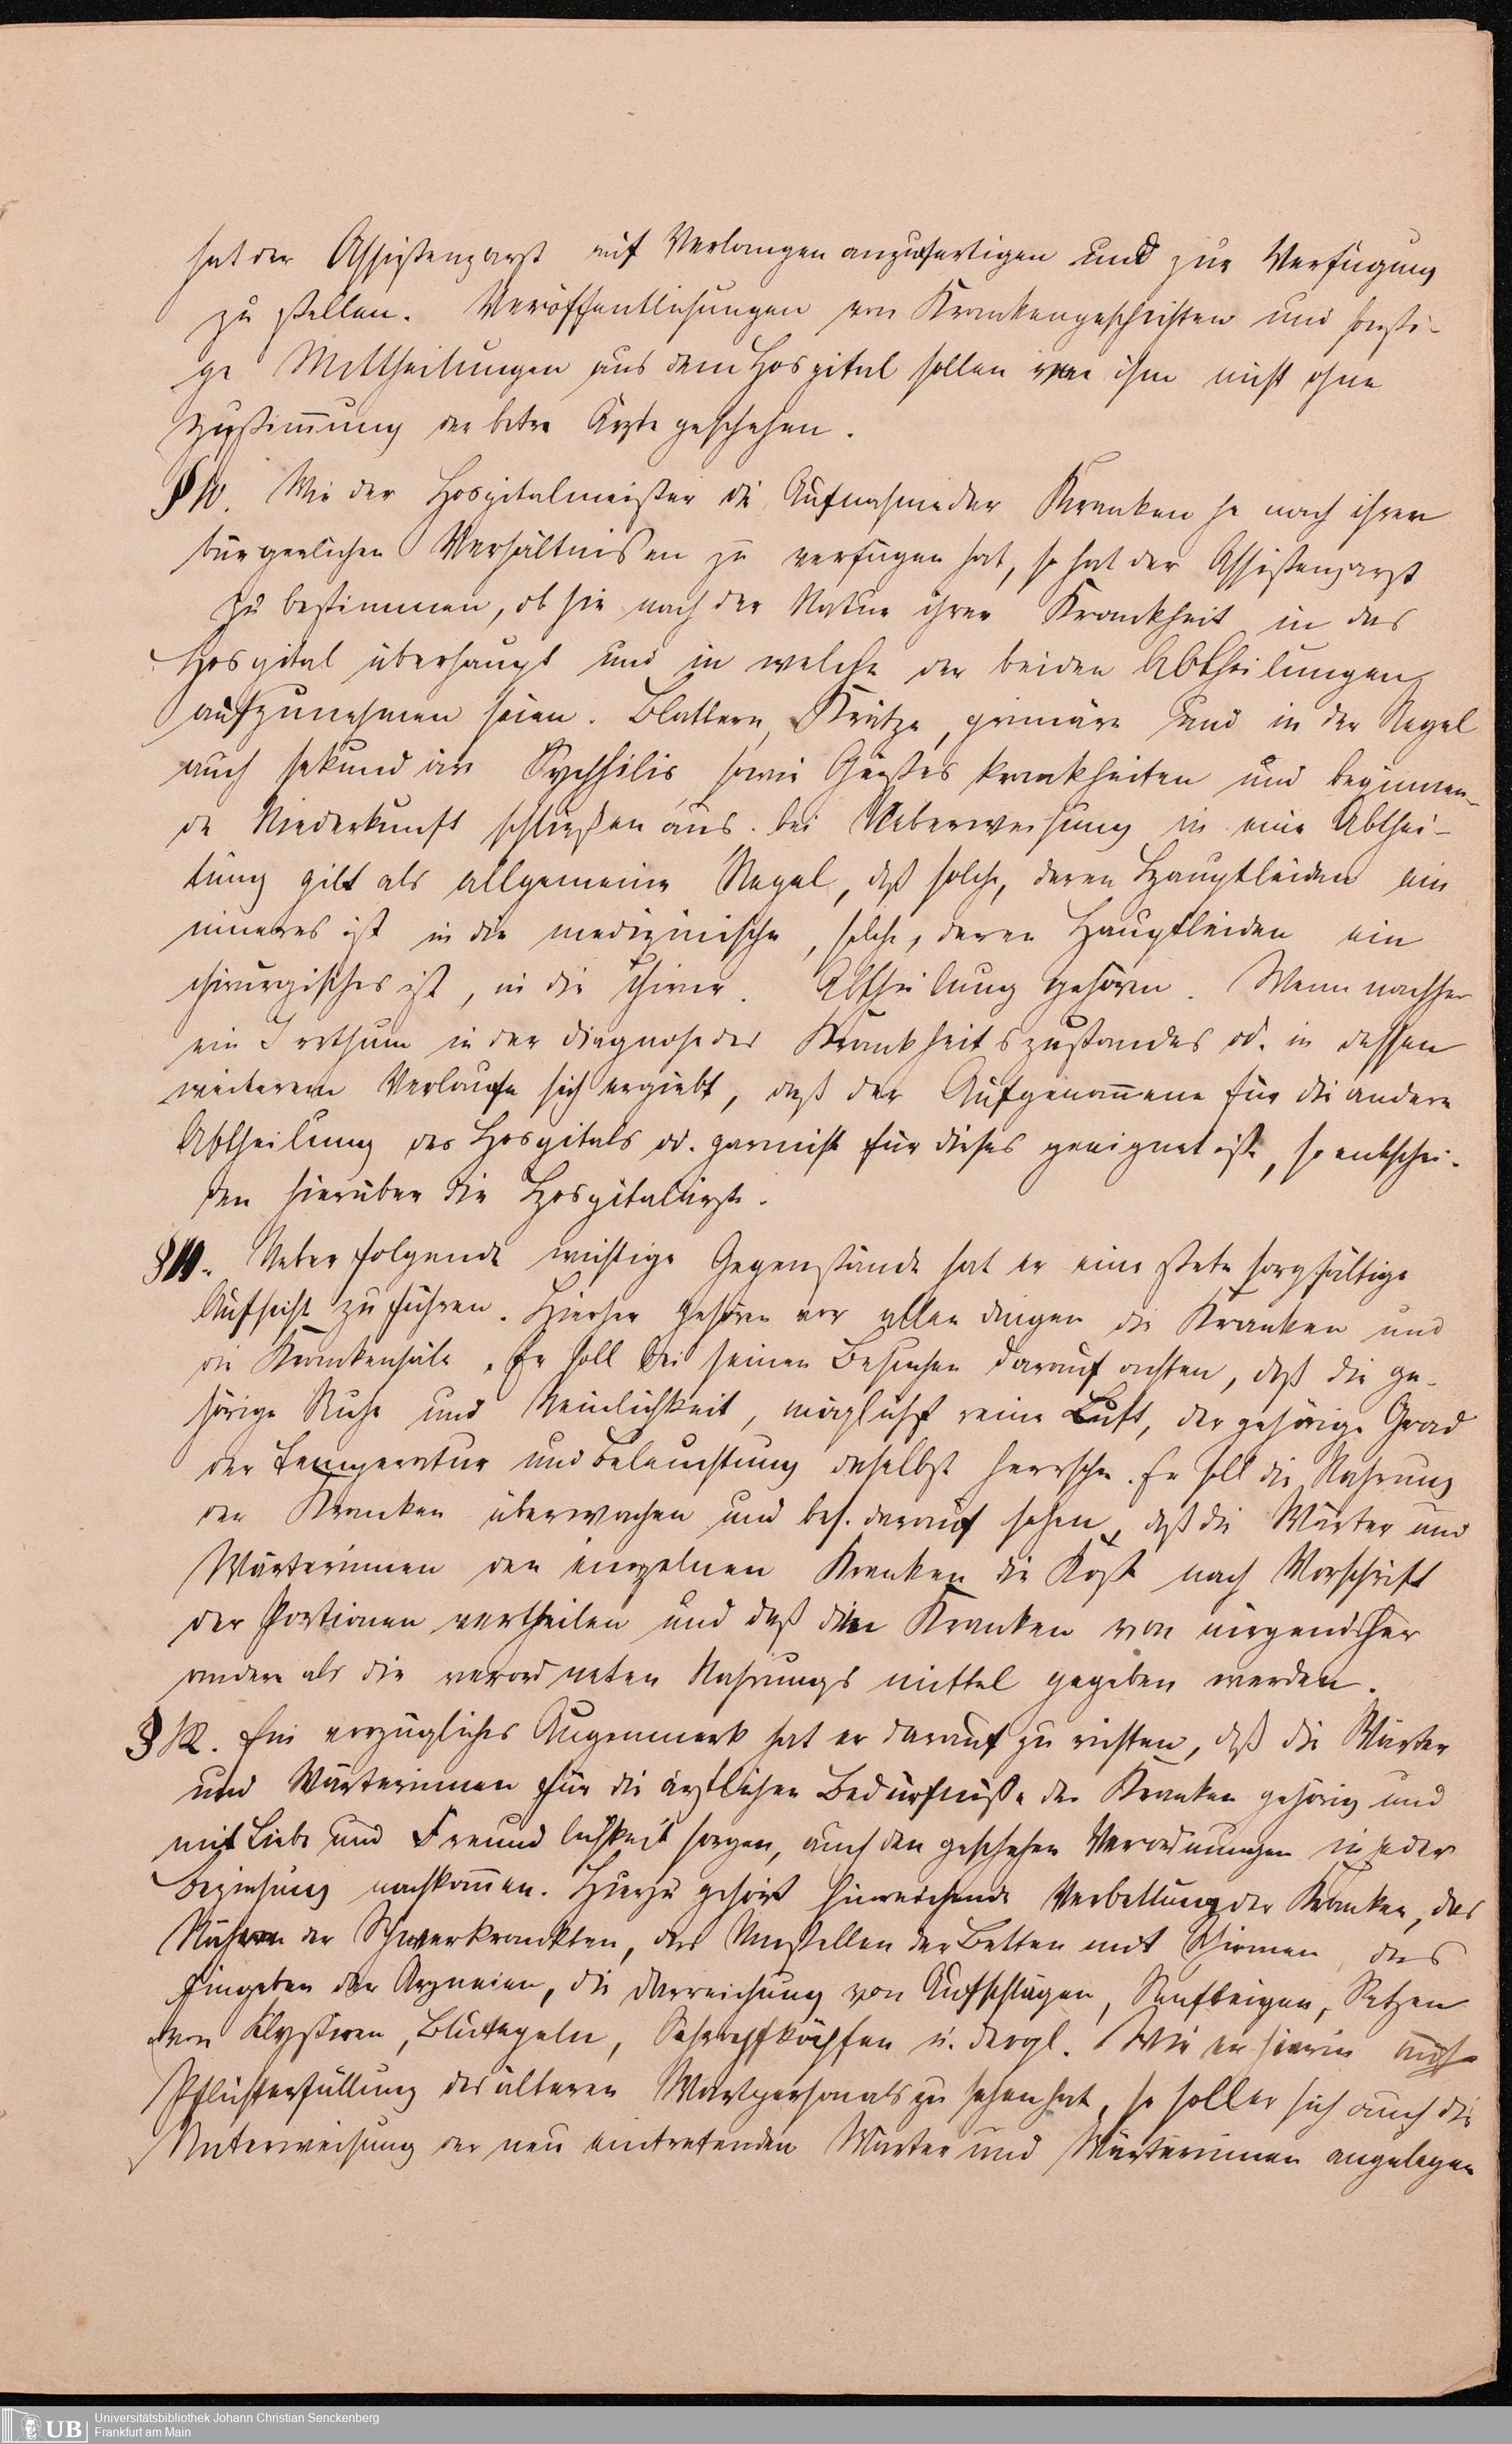 hat der Assistenzarzt auf Verlangen anzufertigen und zur Verfügung
zu stellen. Veröffentlichungen von Krankengeschichten und sonsti-
ge Mittheilungen aus dem Hospital sollen von ihm nicht ohne
Zustim̅ung der betre Ärzte geschehen.
§ 10. Wie der Hospitalmeister die Aufnahme der Kranken je nach ihren
bürgerlichen Verhältnissen zu verfügen hat, so hat der Assistenzarzt
zu bestimmen, ob sie nach der Natur ihrer Krankheit in das
Hospital überhaupt und in welche der beiden Abtheilungen
aufzunehmen seien. Blattern, Krätze, primäre und in der Regel
auch sekundäre Syphilis, sowie Geisteskrankheiten und beginnen-
de Niederkunft schließen aus. bei Ueberweisung in eine Abthei-
lung gilt als allgemeine Regel, daß solche, deren Hauptleiden ein
inneres ist in die medizinische, solche, deren Hauptleiden ein
chirurgisches ist, in die chirur. Abtheilung gehören. Wenn nachher
ein Irrthum in der Diagnose des Krankheitszustandes od. in dessen
weiterem Verlaufe sich ergiebt, daß der Aufgenom̅ene für die andere
Abtheilung des Hospitals od. garnicht für dieses geeignet ist, so entschei-
den hierüber die Hospitalärzte.
§ 11. Ueber folgende wichtige Gegenstände hat er eine stete sorgfältige
Aufsicht zu führen. Hierher gehören vor allen dingen die Kranken und
die Krankensäle. Er soll bei seinen Besuchen darauf achten, daß die ge-
hörige Ruhe und Reinlichkeit, möglichst reine Luft, der gehörige Grad
der Temperatur und Beleuchtung daselbst herrsche. Er soll die Nahrung
der Kranken überwachen und bes. darauf sehen, daß die Wärter und
Wärterinnen den einzelnen Kranken die Kost nach Vorschrift
der Portionen vertheilen und daß den Kranken von nirgendsher
andere als die verordneten Nahrungsmittel gegeben werden.
§ 12. Ein vorzügliches Augenmerk hat er darauf zu richten, daß die Wärter
und Wärterinnen für die ärztlichen Bedürfnisse der Kranken gehörig und
mit Liebe und Freundlichkeit sorgen, auch den geschehen Verordnungen in jeder
Beziehung nachkom̅en. Hierzu gehört hinreichende Verbettung der Kranken, das
der Schwerkrankten, das Umstellen der Betten mit Schirmen, das
Eingeben der Arzneien, die Darreichung von Aufschlägen, Senfteigen, Setzen
von Klystiren, Blutegeln, Schröpfköpfen u. dergl. Wie er hierin
Pflichterfüllung des älteren Wartpersonals zu sehen hat, so soll er sich auch die
Unterweisung der neu eintretenden Wärter und Wärterinnen angelegen
UB
Universitätsbibliothek Johann Christian Senckenberg
Frankfurt am Main